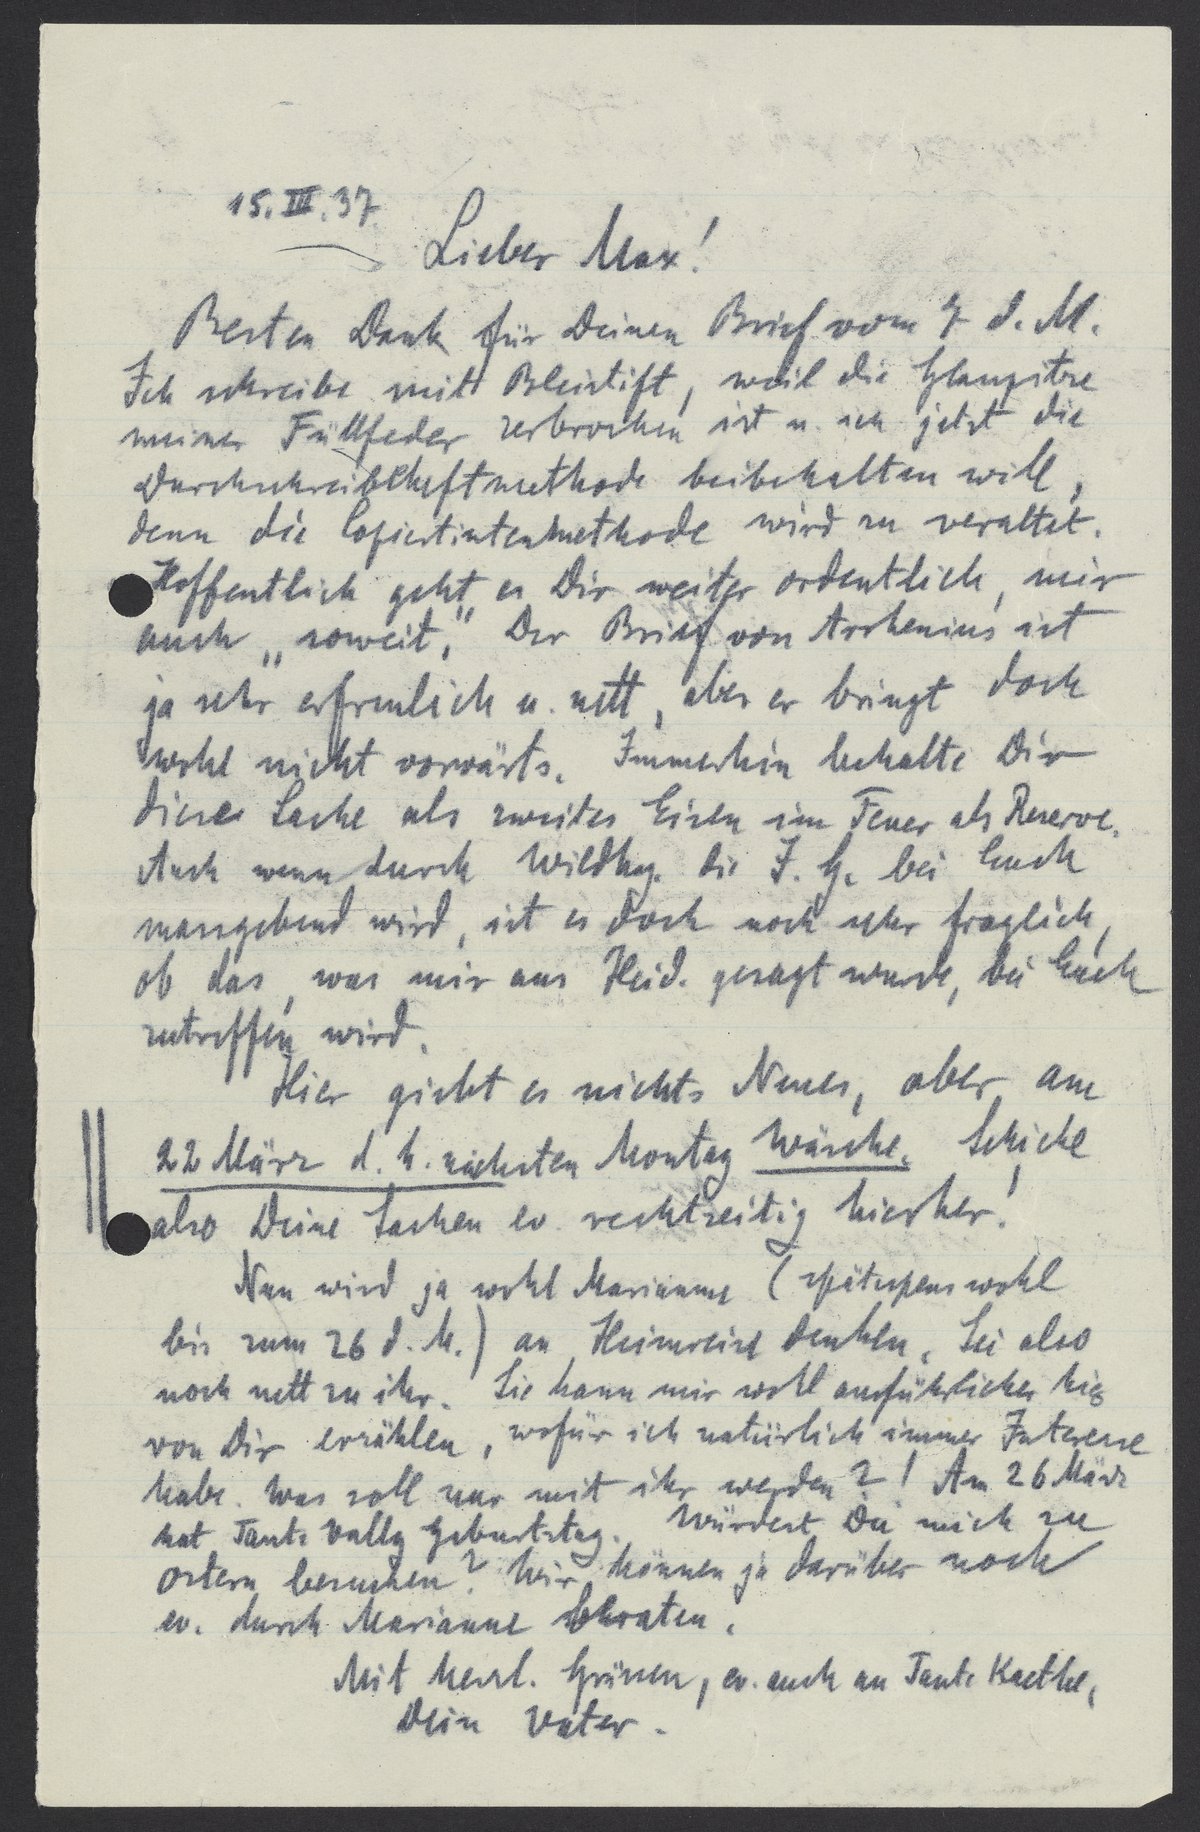 15. III. 37.
Lieber Max!
Besten Dank für Deinen Brief vom 7 d. M.
Ich schreibe mit Bleistift, weil die Glasspitze
meiner Füllfeder zerbrochen ist u. ich jetzt die
Durchschreibheftmethode beibehalten will,
denn die Copiertintenmethode wird zu veraltet.
Hoffentlich geht es Dir weiter ordentlich, mir
auch „soweit." Der Brief von Arrhenius ist
ja sehr erfreulich u. nett, aber er bringt doch
wohl nicht vorwärts. Immerhin behalte Dir
diese Sache als zweites Eisen im Feuer als Reserve.
Auch wenn durch Wildhag. die I. G. bei Euch
massgebend wird, ist es doch noch sehr fraglich,
ob das, was mir aus Heid. gesagt wurde, bei Euch
zutreffen wird.
Hier giebt es nichts Neues, aber am
22 März d. h. nächsten Montag Wäsche. Schicke
also Deine Sachen ev. rechtzeitig hierher!
Nun wird ja wohl Marianne (spätestens wohl
bis zum 26 d. M.) an Heimreise denken. Sei also
noch nett zu ihr. Sie kann mir wohl ausführlicher hier
von Dir erzählen, wofür ich natürlich immer Interesse
habe. Was soll nur mit ihr werden?! Am 26 März
hat Tante Vally Geburtstag. Würdest Du mich zu
Ostern besuchen? Wir können ja darüber noch
ev. durch Marianne beraten.
Mit herzl. Grüssen, ev. auch an Tante Kaethe,
Dein Vater.